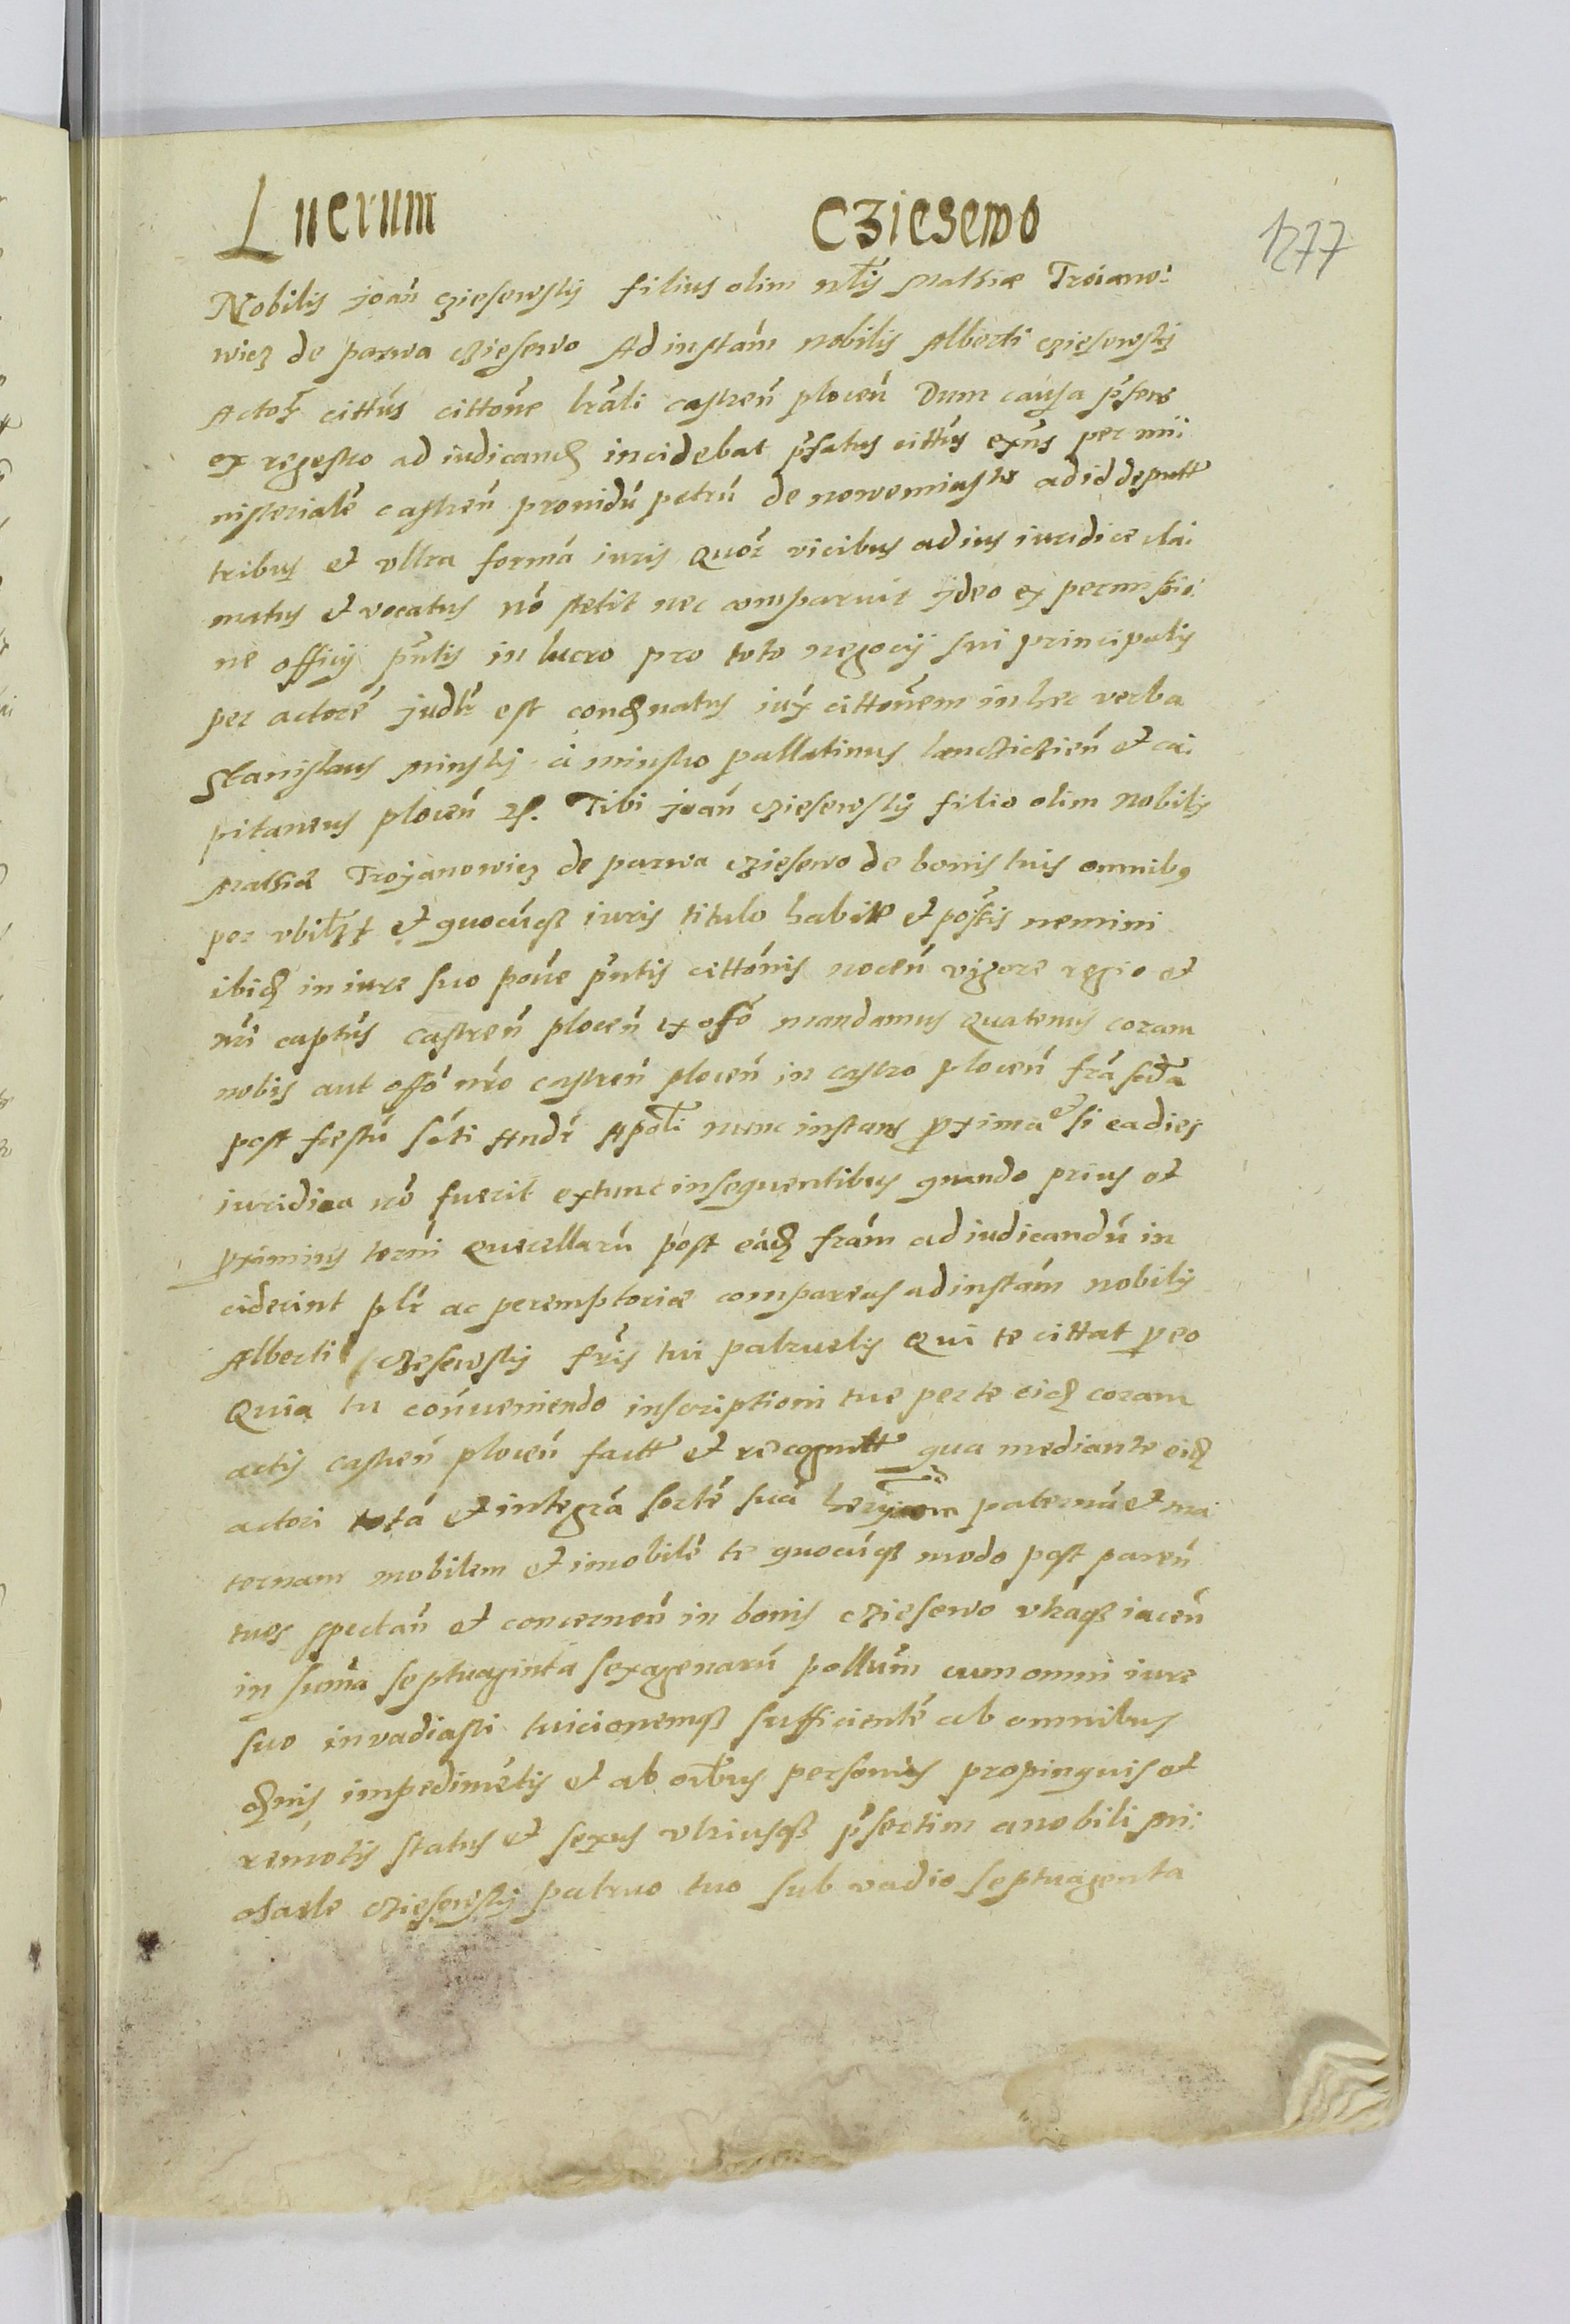 Lucrum Cziesewo
1277
Nobilis joan̄ cziesewskij filius olim nlis Mathiæ Troiano-
wicz de parwa cziesewo Ad instam̄ nobilis Alberti cziesewskij
Actor̄ cittūs cittōne lrāli castren̄ plocen̄ Dum causa p̄sens
ex regestro ad iudicand̄ incidebat p̄fatus cittūs exn̄s per mi-
nisterialē castren̄ providū petrū de nowemiasto ad id deputt
tribus et ultra formā iuris quor̄ vicibus ad ius iuridice cla-
matus et vocatus nō stetit nec comparuit jdeo ex permissio-
ne officij pn̄tis in lucro pro toto negocij sui principalis
per actorē judr̄ est cond̄natus iux̄ cittōnem in hec verba
Stanislaus Minskij a minsko pallatinus lancziczien̄ et ca-
pitaneus plocen̄ zc. Tibi joan̄ cziesewskij filio olim nobilis
Mathiæ Trojanowicz de parwa cziesewo de bonis tuis omnibꝯ
per ubilz et quocūqꝫ iuris titulo habitis et poss̄is nemini
ibid̄ in iure suo pōne pn̄tis cittōnis nocen̄ vigore regio et
nr̄i captūs castren̄ plocen̄ ex offō mandamus quatenus coram
nobis aut offō nr̄o castren̄ plocen̄ in castro plocen̄ frā scd̄a
post festū sc̄ti Andr̄ Apōli nunc instans proxima et si ea dies
iuridica nō fuerit extunc insequentibus quando prius et
proximius termī querellarū post eād̄ frām ad iudicandū in
ciderint plr̄ ac peremptoriæ compareas ad instam̄ nobilis
Alberti cziesewskij fr̄is tui patruelis Qui te cittat pro eo
Quia tu conveniendo inscriptioni tue per te eid̄ coram
actis castren̄ plocen̄ factt et recognitt qua mediante eid̄
actori totā et integrā sortē suā paternā et ma
ternam mobilem et imobilē te quocūqꝫ modo post paren̄
tuos spectan̄ et concernen̄ in bonis cziesewo utraqꝫ iacen̄
in sum̄a septuaginta sexagenarū pollum̄ cum omni iure
suo invadiasti tuicionemqꝫ sufficientē ab omnibus
qbuis impedimētis et ab oībus personis propinquis et
remotis status et sexus utriusqꝫ p̄sertim a nobili Mi-
chaele cziesewskij patruo tuo sub vadio septuagenta